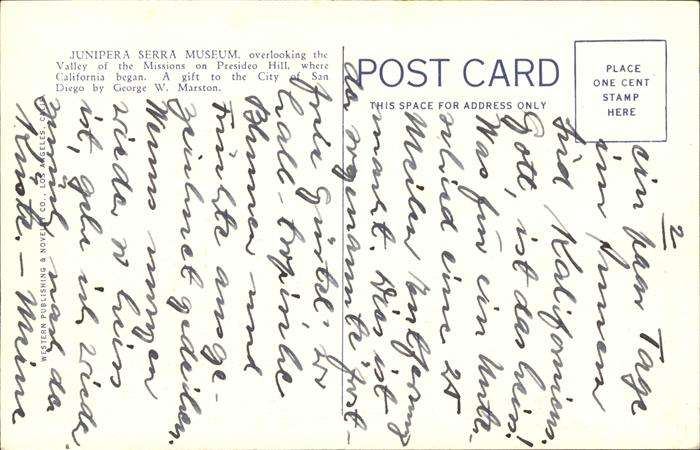 JUNIPERA SERRA MUSEUM, overlooking the
Valley of the Missions on Presideo Hill, where
California began. A gift to the City of San
Diego by George W. Marston.
POST CARD
THIS SPACE FOR ADDRESS ONLY
PLACE
ONE CENT
STAMP
HERE
WESTERN PUBLISHING & NOVELTY CO., LOS ANGELES, CAL.
2
ein paar Tage
im Innern
Süd Kaliforniens.
Gott, ist das heiss!
Was für ein Unter-
schied eine 25
Meilen Entfernung
macht. Dies ist
der sogenannte „fost-
free Gürtel" wo
halb-tropische
Blumen und
Früchte ausge-
zeichnet gedeihen.
Wenns morgen
wieder so heiss
ist, gehe ich wieder
zurück nach der
Küste. — Meine